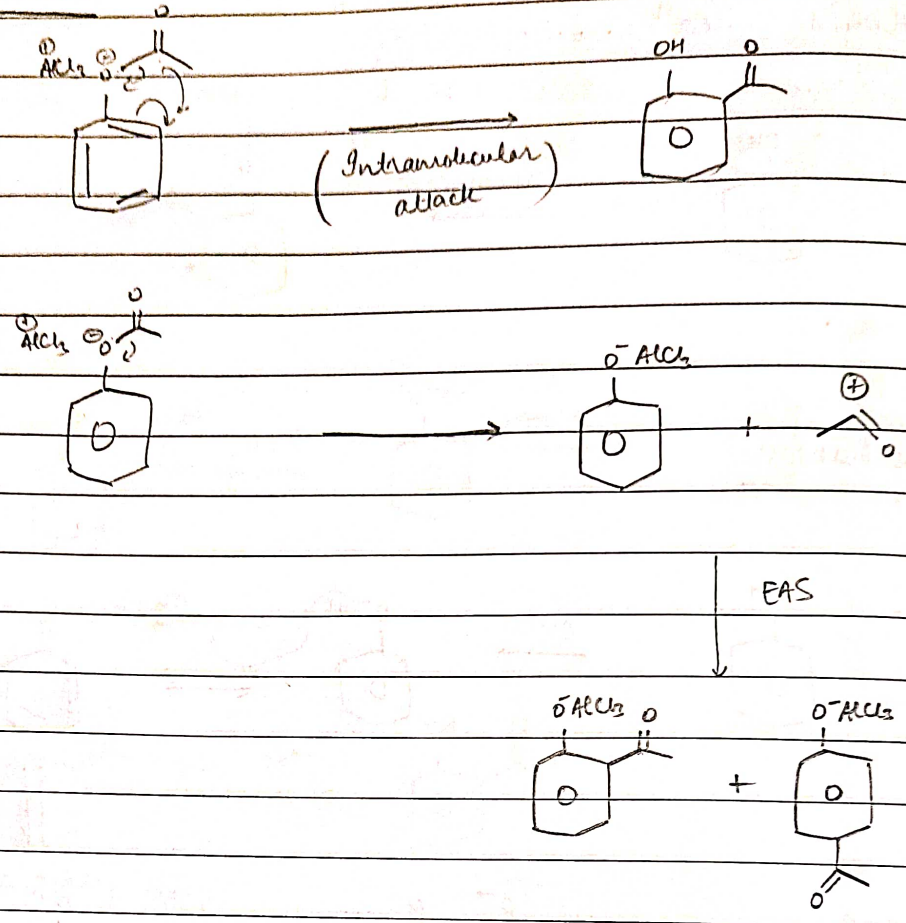 O
⊕ ⊖
AlCl3 O
OH O
(Intramolecular
attack)
O
⊕
AlCl3 ⊖O
O
O⁻ AlCl3
O
+
⊕
O
EAS
O⁻AlCl3 O
O
+
O⁻AlCl3
O
O